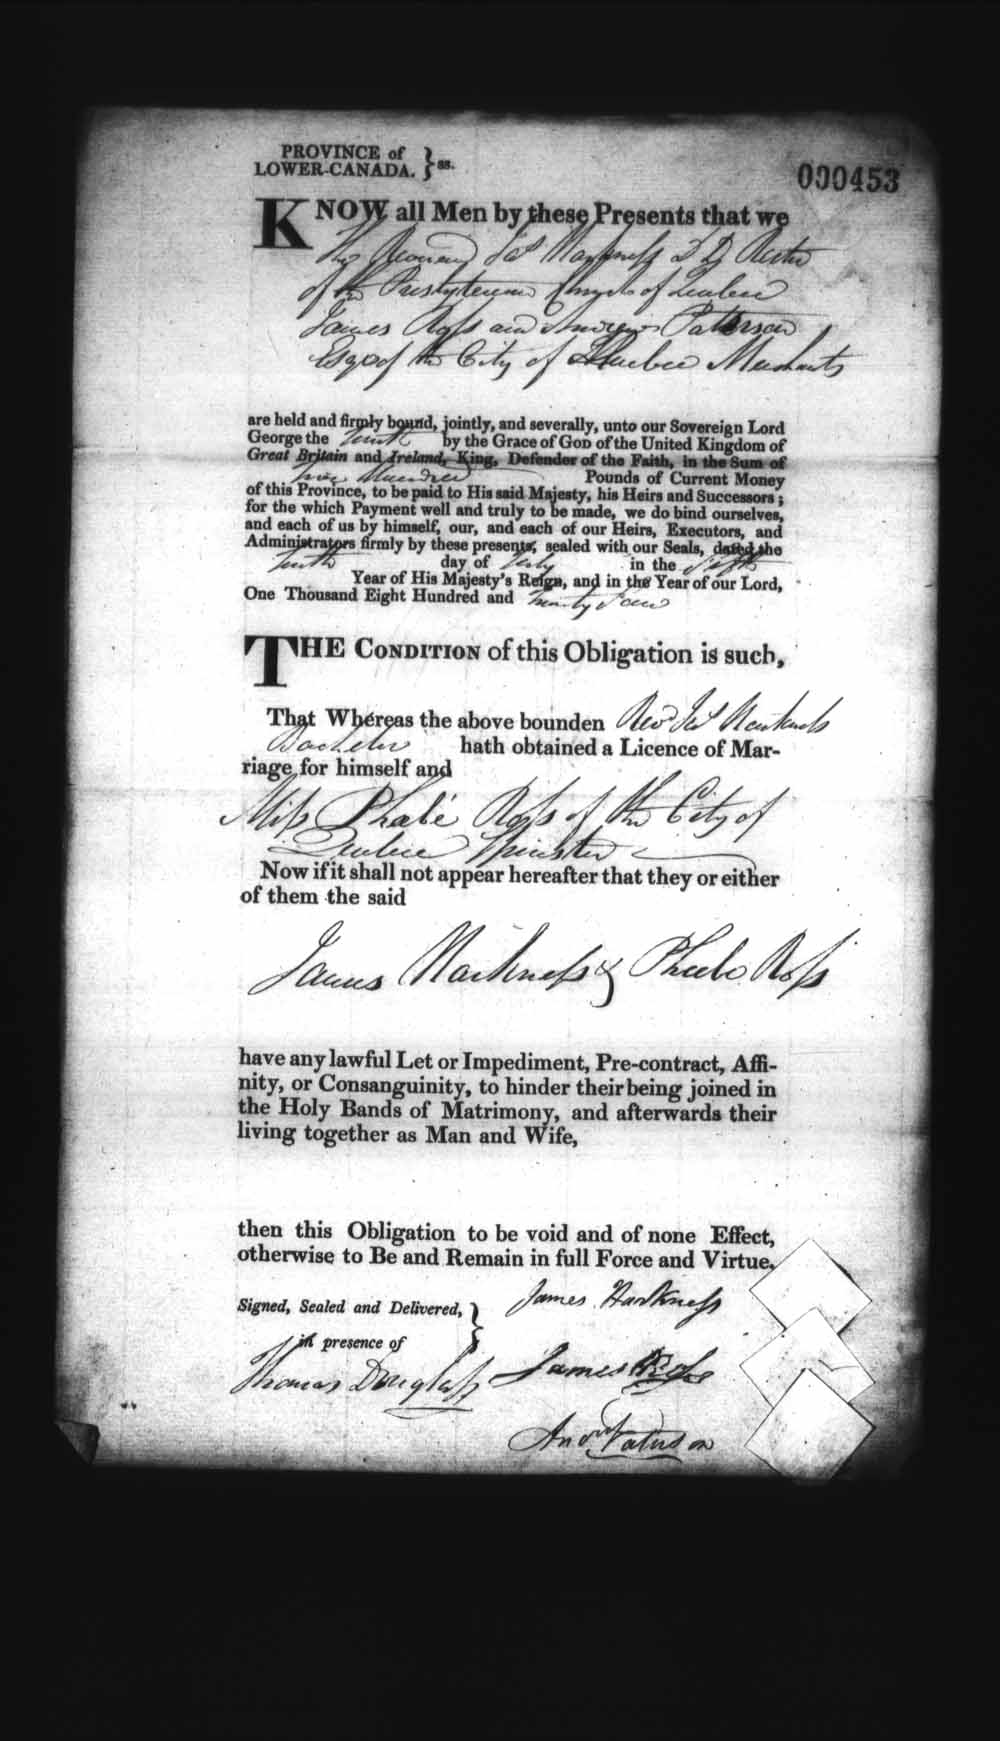 PROVINCE of
LOWER-CANADA. } ss.
000453
KNOW all Men by these Presents that we
The Reverend Jas Harkness D D Rector
of the Presbyterian Church of Quebec
James Ross and Andrew Paterson
Esqrs of the City of Quebec Merchants
are held and firmly bound, jointly, and severally, unto our Sovereign Lord
George the by the Grace of GOD of the United Kingdom of
Great Britain and Ireland, King, Defender of the Faith, in the Sum of
Hundred Pounds of Current Money
of this Province, to be paid to His said Majesty, his Heirs and Successors;
for the which Payment well and truly to be made, we do bind ourselves,
and each of us by himself, our, and each of our Heirs, Executors, and
Administrators firmly by these presents, sealed with our Seals, dated the
day of July in the Fifth
Year of His Majesty's Reign, and in the Year of our Lord,
One Thousand Eight Hundred and Twenty Four
THE CONDITION of this Obligation is such,
That Whereas the above bounden Revd Jas Harkness
Bachelor hath obtained a Licence of Mar-
riage for himself and
Miss Phabé Ross of the City of
Quebec Spinster
Now if it shall not appear hereafter that they or either
of them the said
James Harkness & Phœbe Ross
have any lawful Let or Impediment, Pre-contract, Affi-
nity, or Consanguinity, to hinder their being joined in
the Holy Bands of Matrimony, and afterwards their
living together as Man and Wife,
then this Obligation to be void and of none Effect,
otherwise to Be and Remain in full Force and Virtue.
Signed, Sealed and Delivered, }
in presence of
James Harkness
Thomas Douglass
James Ross
Andw Paterson